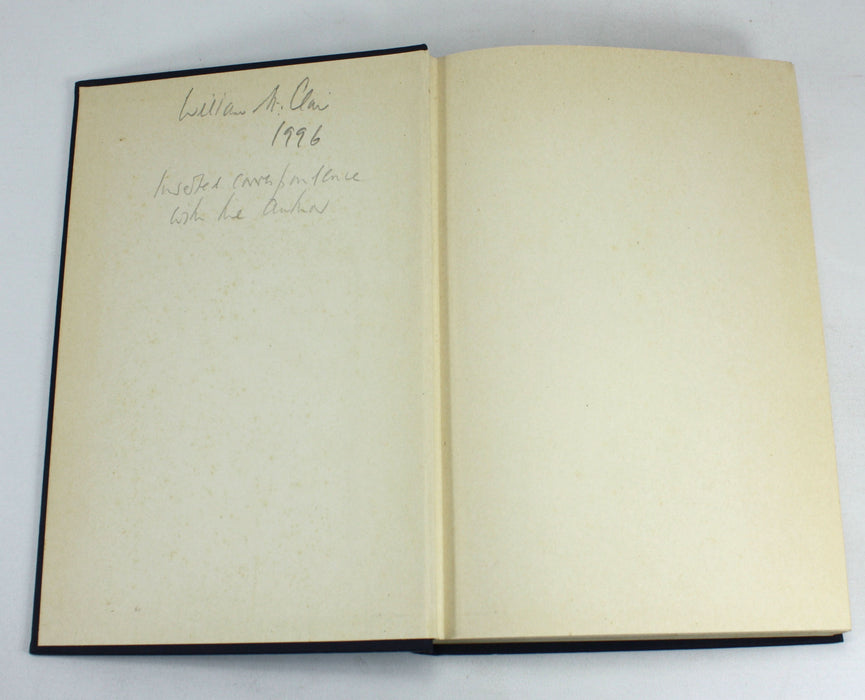 William St. Clair
1996
Inserted correspondence
with the Author